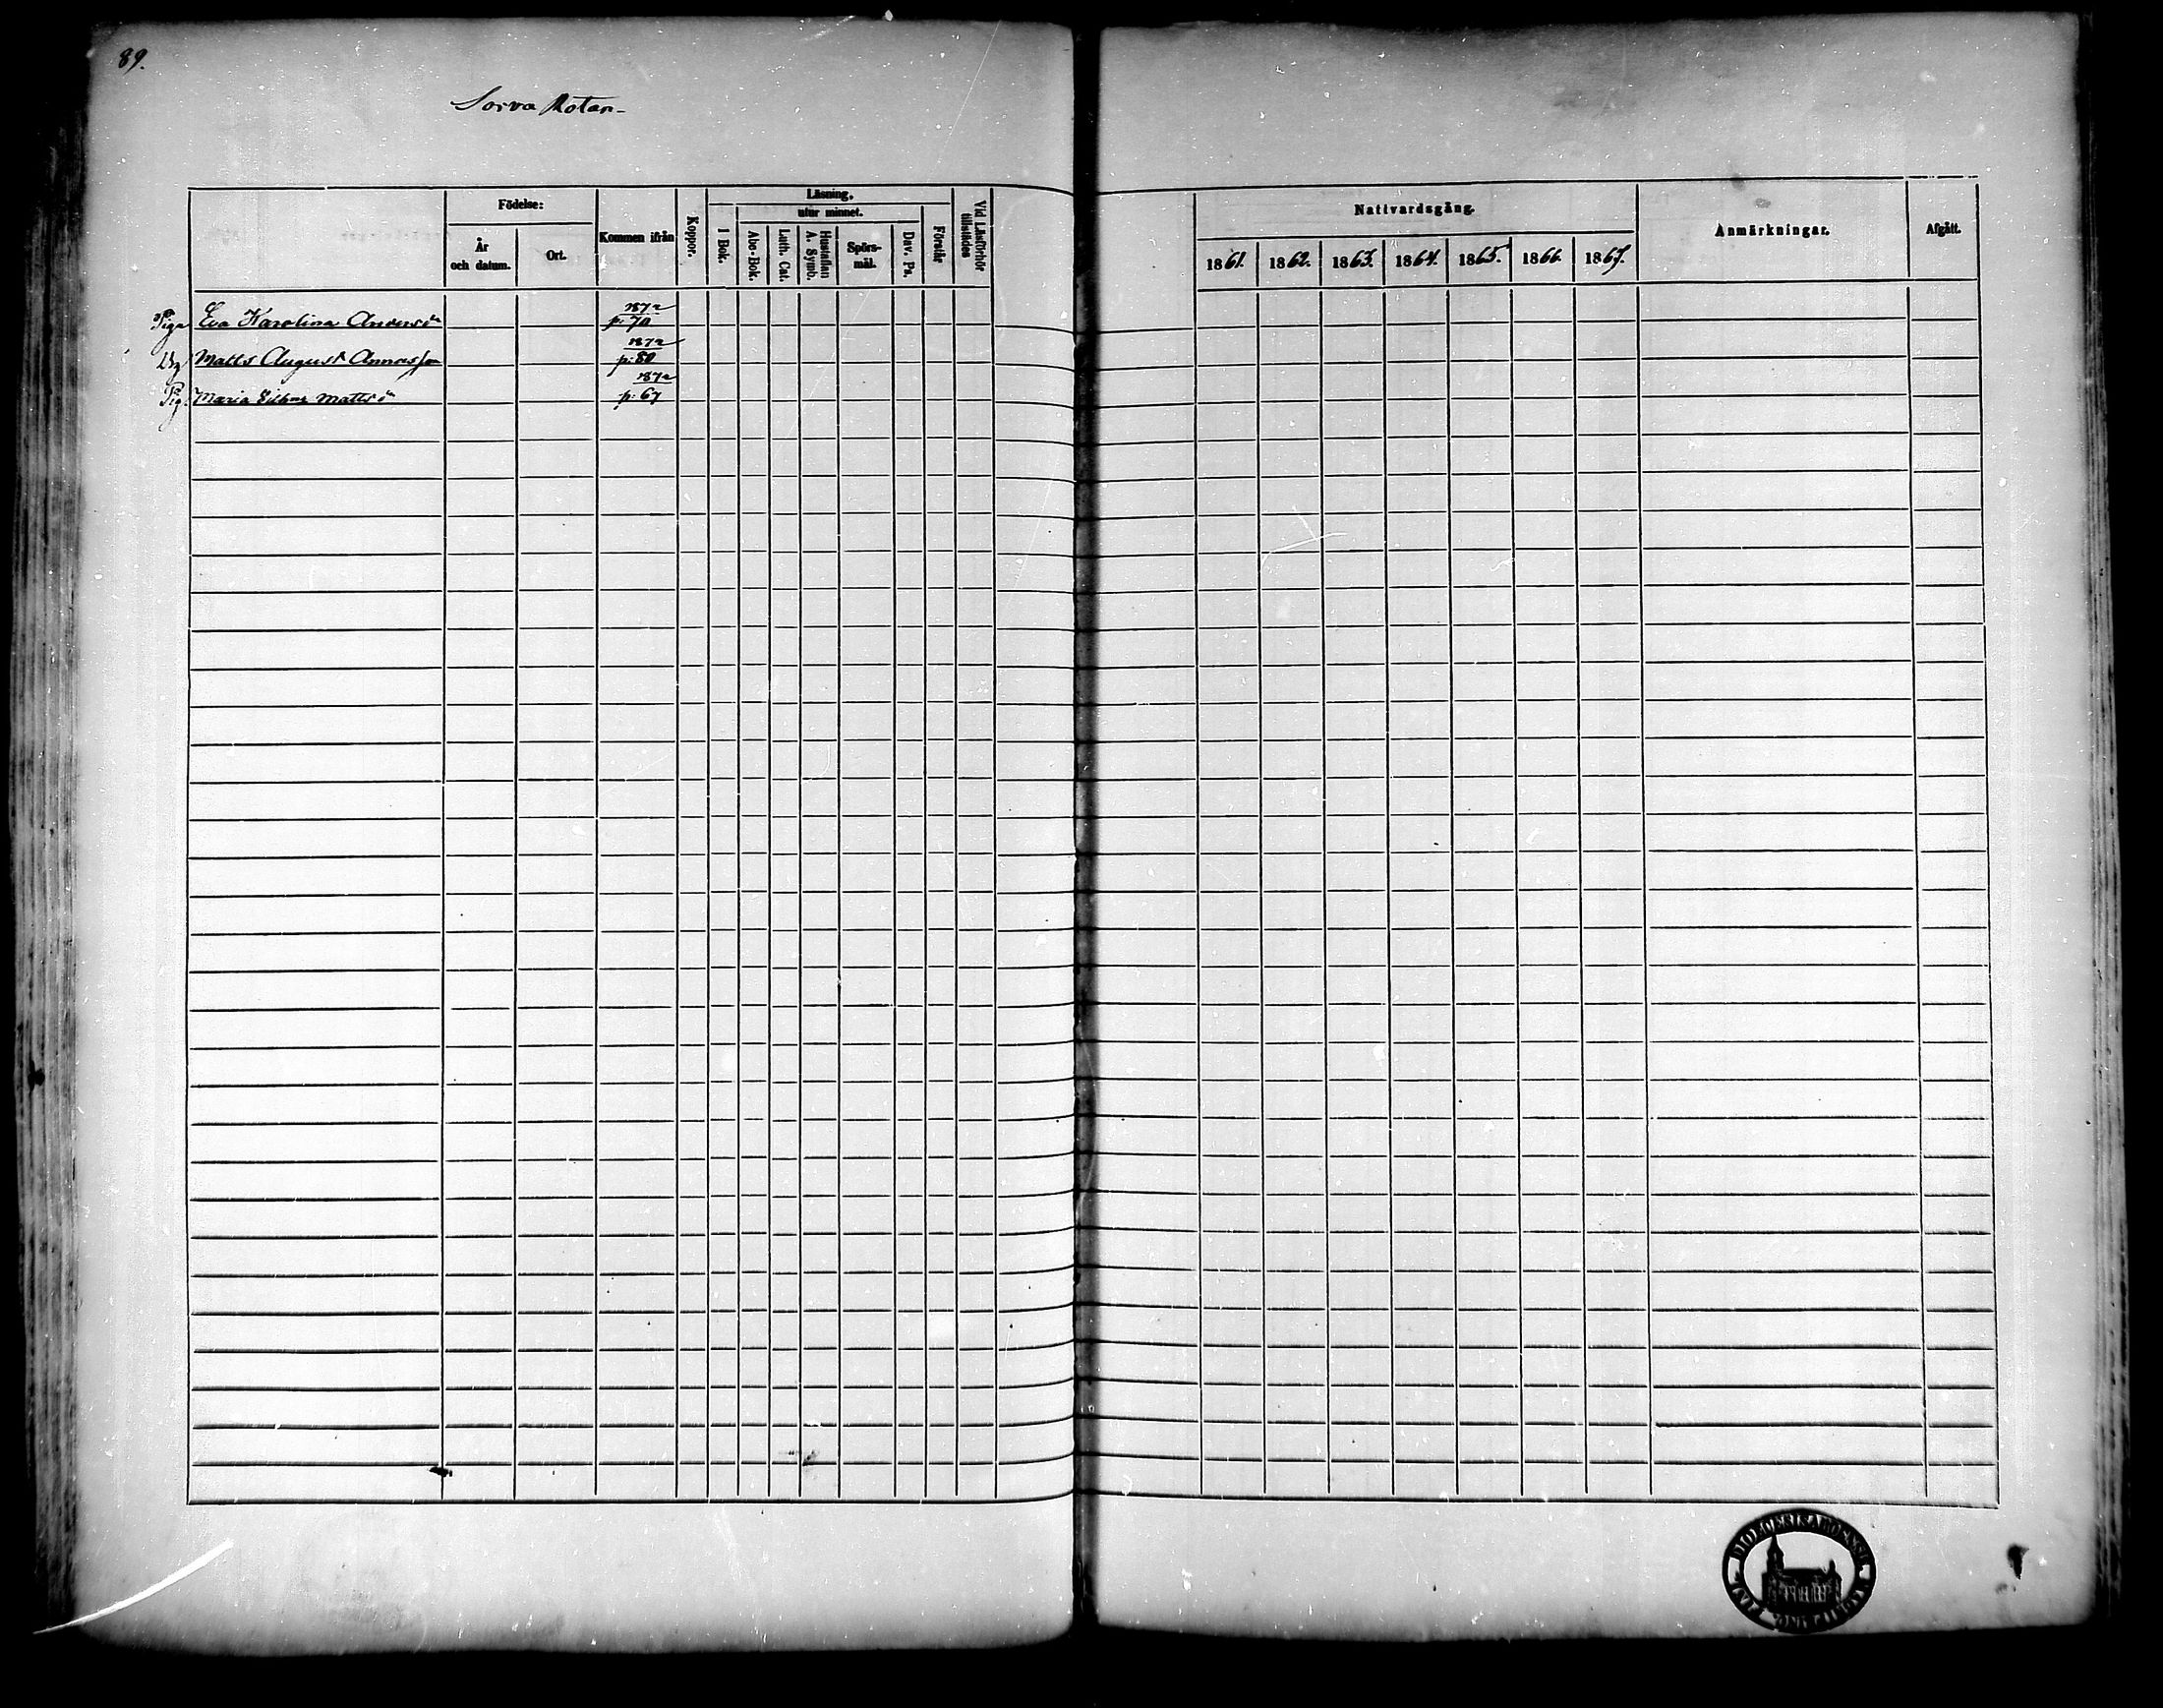 89.
Sorva Rotan
Födelse:
År och datum.
Ort.
Kommen ifrån
Koppor.
Läsning,
utur minnet.
I Bok.
Abc-Bok.
Luth. Cat.
Hustaflan A. Symb.
Spörsmål.
Dav. Ps.
Förstår
Vid Läsförhör tillstädes
Nattvardsgång.
1861. 1862. 1863. 1864. 1865. 1866. 1867.
Anmärkningar.
Afgått.
Piga Eva Karolina Andersdr 187a p. 70
Matts August Annasson 187a p. 80
Pig. Maria Mattsdr 187a p. 67